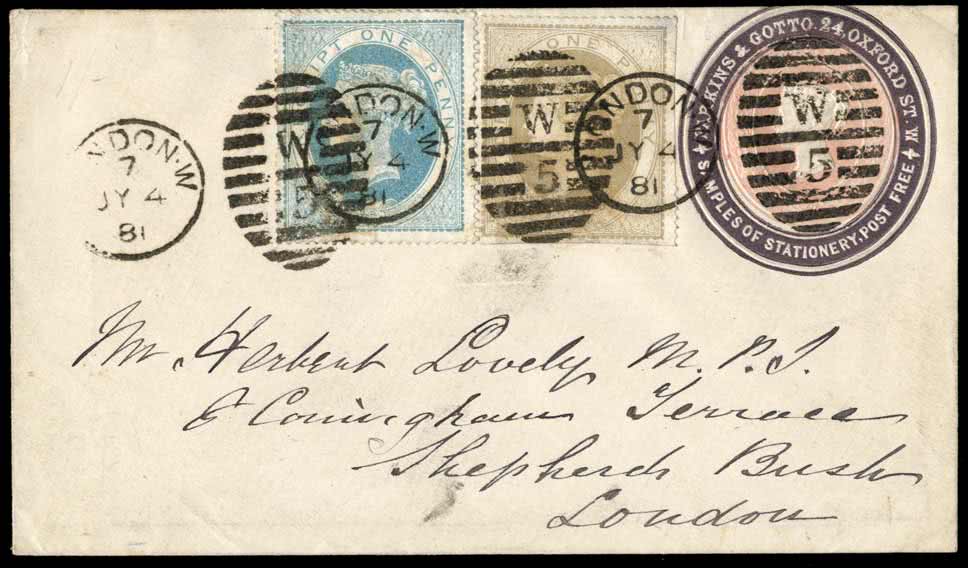 PT ONE PENN
ONE P
PKINS & GOTTO. 24, OXFORD ST. W.
S MPLES OF STATIONERY, POST FREE
NDON·W
7
JY 4
81
W
5
NDON·W
7
Y 4
81
W
5
ONDON
7
JY 4
81
W
5
Mr Herbert Lovely M.P.S.
Coningham Terrace
Shepherds Bush
London